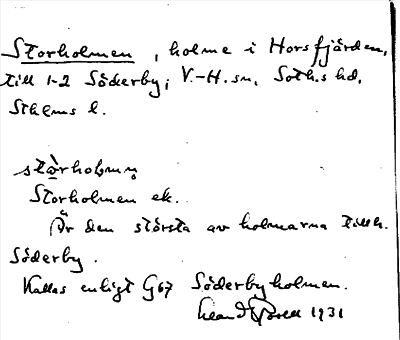 Storholmen, holme i Horsfjärden,
till 1-2 Söderby; V.-H. sn, Soth.s hd,
Sthlms l.
Storholmen ek.
Är den största av holmarna till h.
Söderby.
Kallas enligt G67 Söderbyholmen.
1931